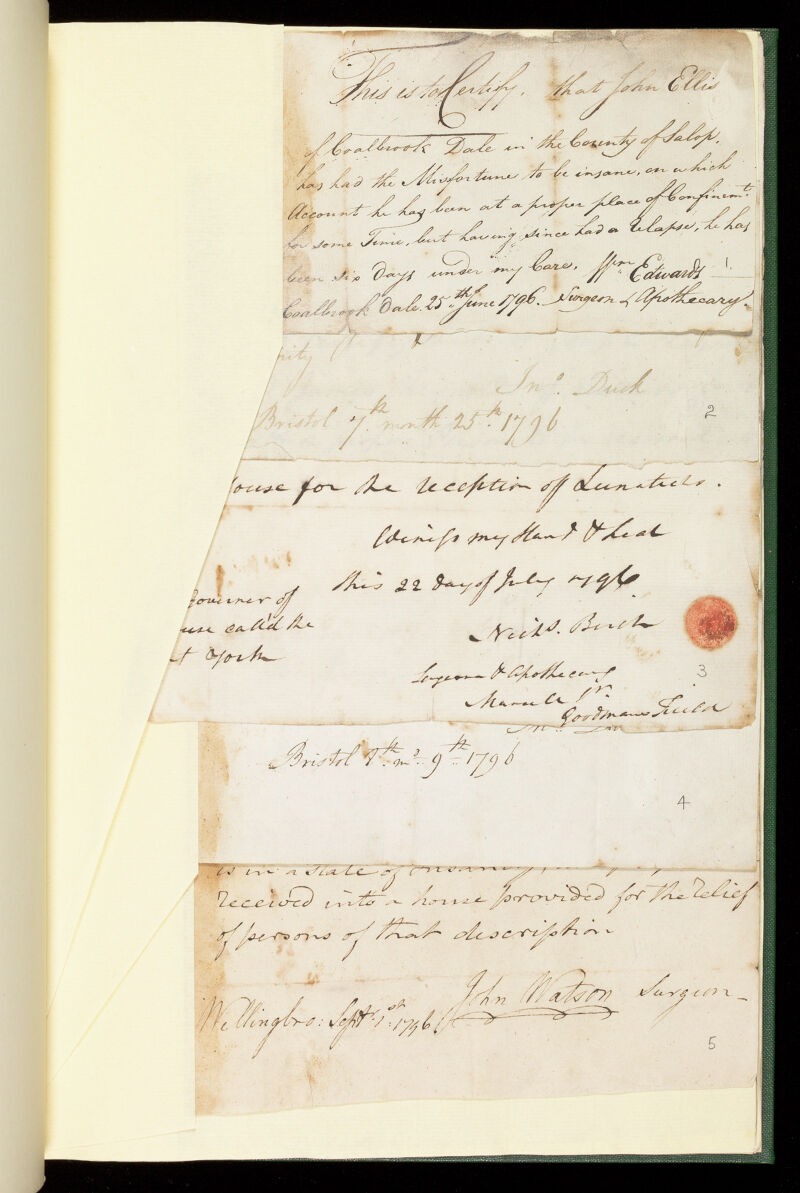 This is to Certify, that John Ellis
of Coalbrook Dale in the County of Salop,
has had the Misfortune to be insane, on which
Account he has been at a proper place of Confinemt.
for some Time, but having since had a Relapse, he has
been six days under my Care. Wm Edwards
Coalbrook Dale. 25th June 1796. Surgeon & Apothecary.
Jno. Duck
Bristol 7th month 25th 1796
2
ouse for the reception of Lunatics.
Witness my Hand & Seal
this 22 day of July 1796.
Governer of
use call'd the
t York
Nichs. Birch
Surgeon & Apothecary
Mansell Str.
Goodmans Field
3
Bristol 8th mo. 9th 1796
4
is in a state of insanity,
received into a house provided for the relief
of persons of that description
John Watson Surgeon
Wellingbro: Septr. 1st 1796
5